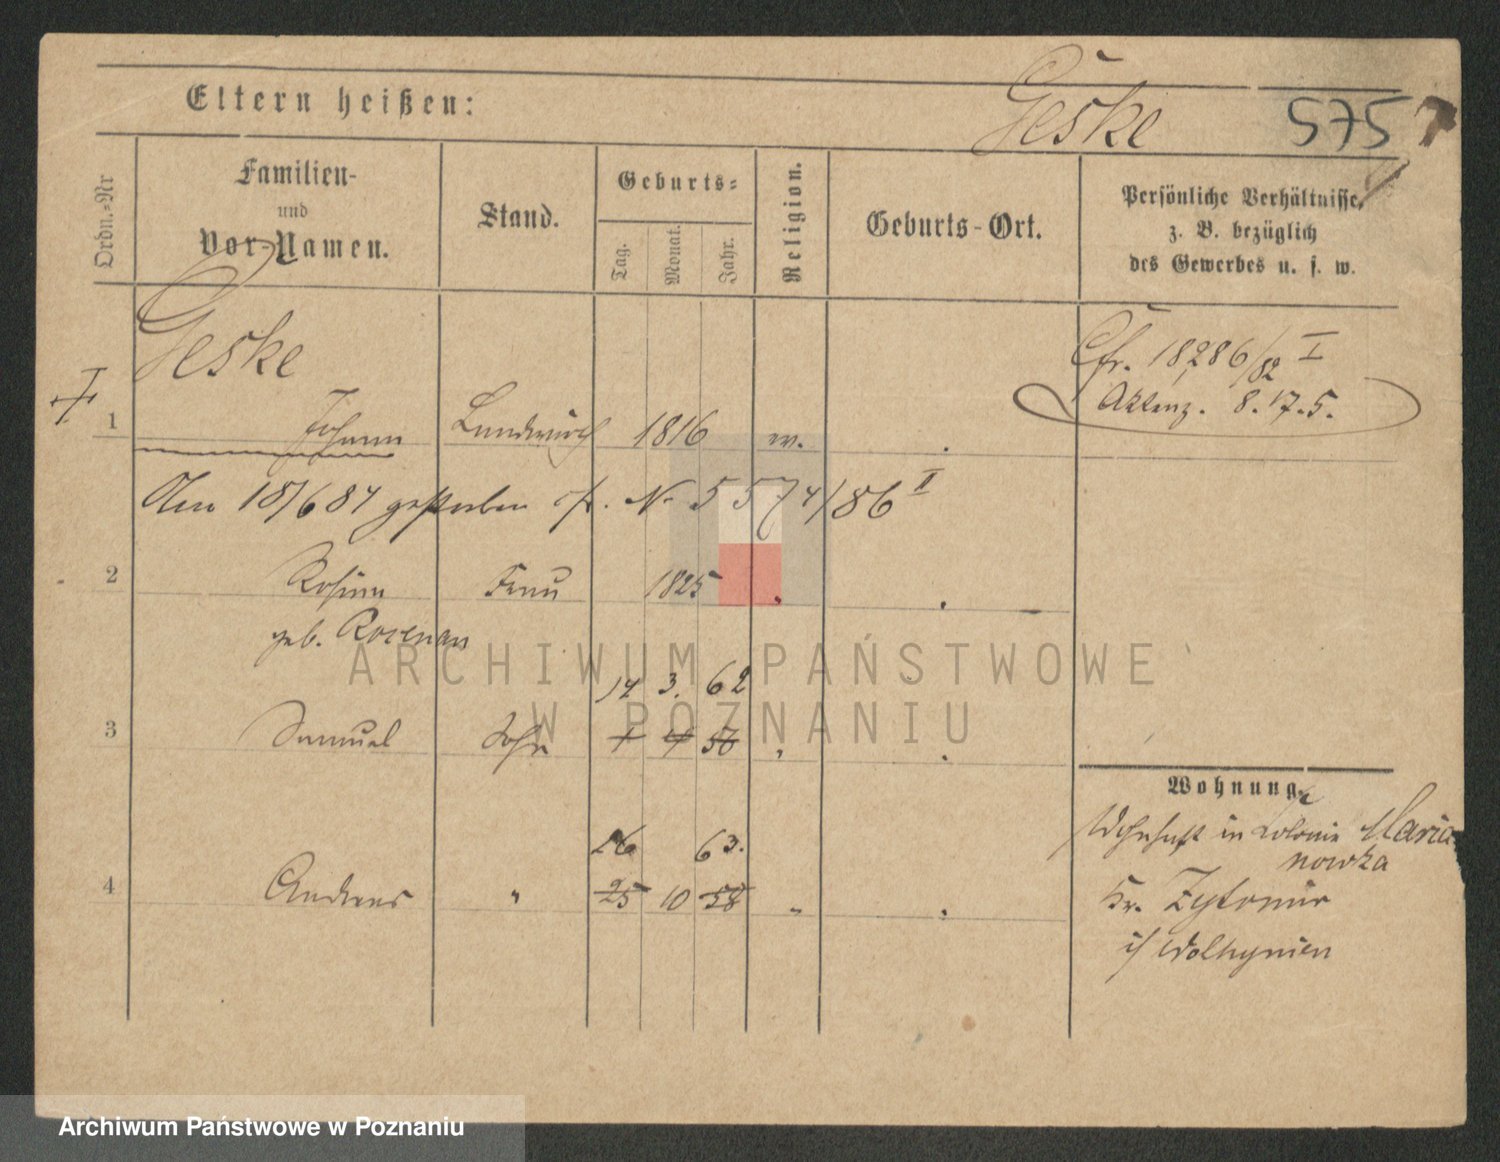 Eltern heißen:
Geske
575
Ordn.-Nr
Familien-
und
Vor-Namen.
Stand.
Geburts-
Tag.
Monat.
Jahr.
Religion.
Geburts-Ort.
Persönliche Verhältnisse,
z. B. bezüglich
des Gewerbes u. s. w.
Geske
Cfr. 18286/82 I
Aktenz. 8.17.5.
1 Johann Landwirth 1816
Am 18/6 84 gestorben cfr. N. 5574/86 II
2 Rosina Frau 1825
geb. Rosenau
14 3. 62
3 Samuel Sohn 1 4 56
26 63.
4 Andreas " 25 10 58
Wohnung.
Wohnhaft in Kolonie Maria
nowka
Kr. Zytomir
i/ Wolhynien
ARCHIWUM PAŃSTWOWE
W POZNANIU
Archiwum Państwowe w Poznaniu